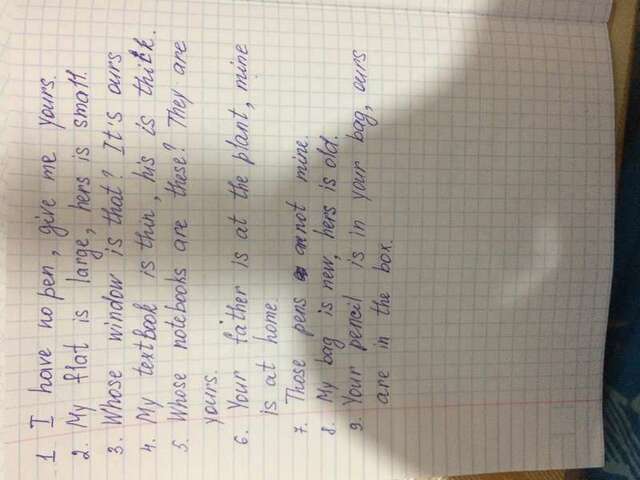 1 I have no pen, give me yours.
2. My flat is large, hers is small.
3. Whose window is that? It's ours
4. My textbook is thin, his is thick.
5. Whose notebooks are these? They are
yours.
6. Your father is at the plant, mine
is at home.
7. Those pens are not mine.
8. My bag is new, hers is old.
9. Your pencil is in your bag, ours
are in the box.